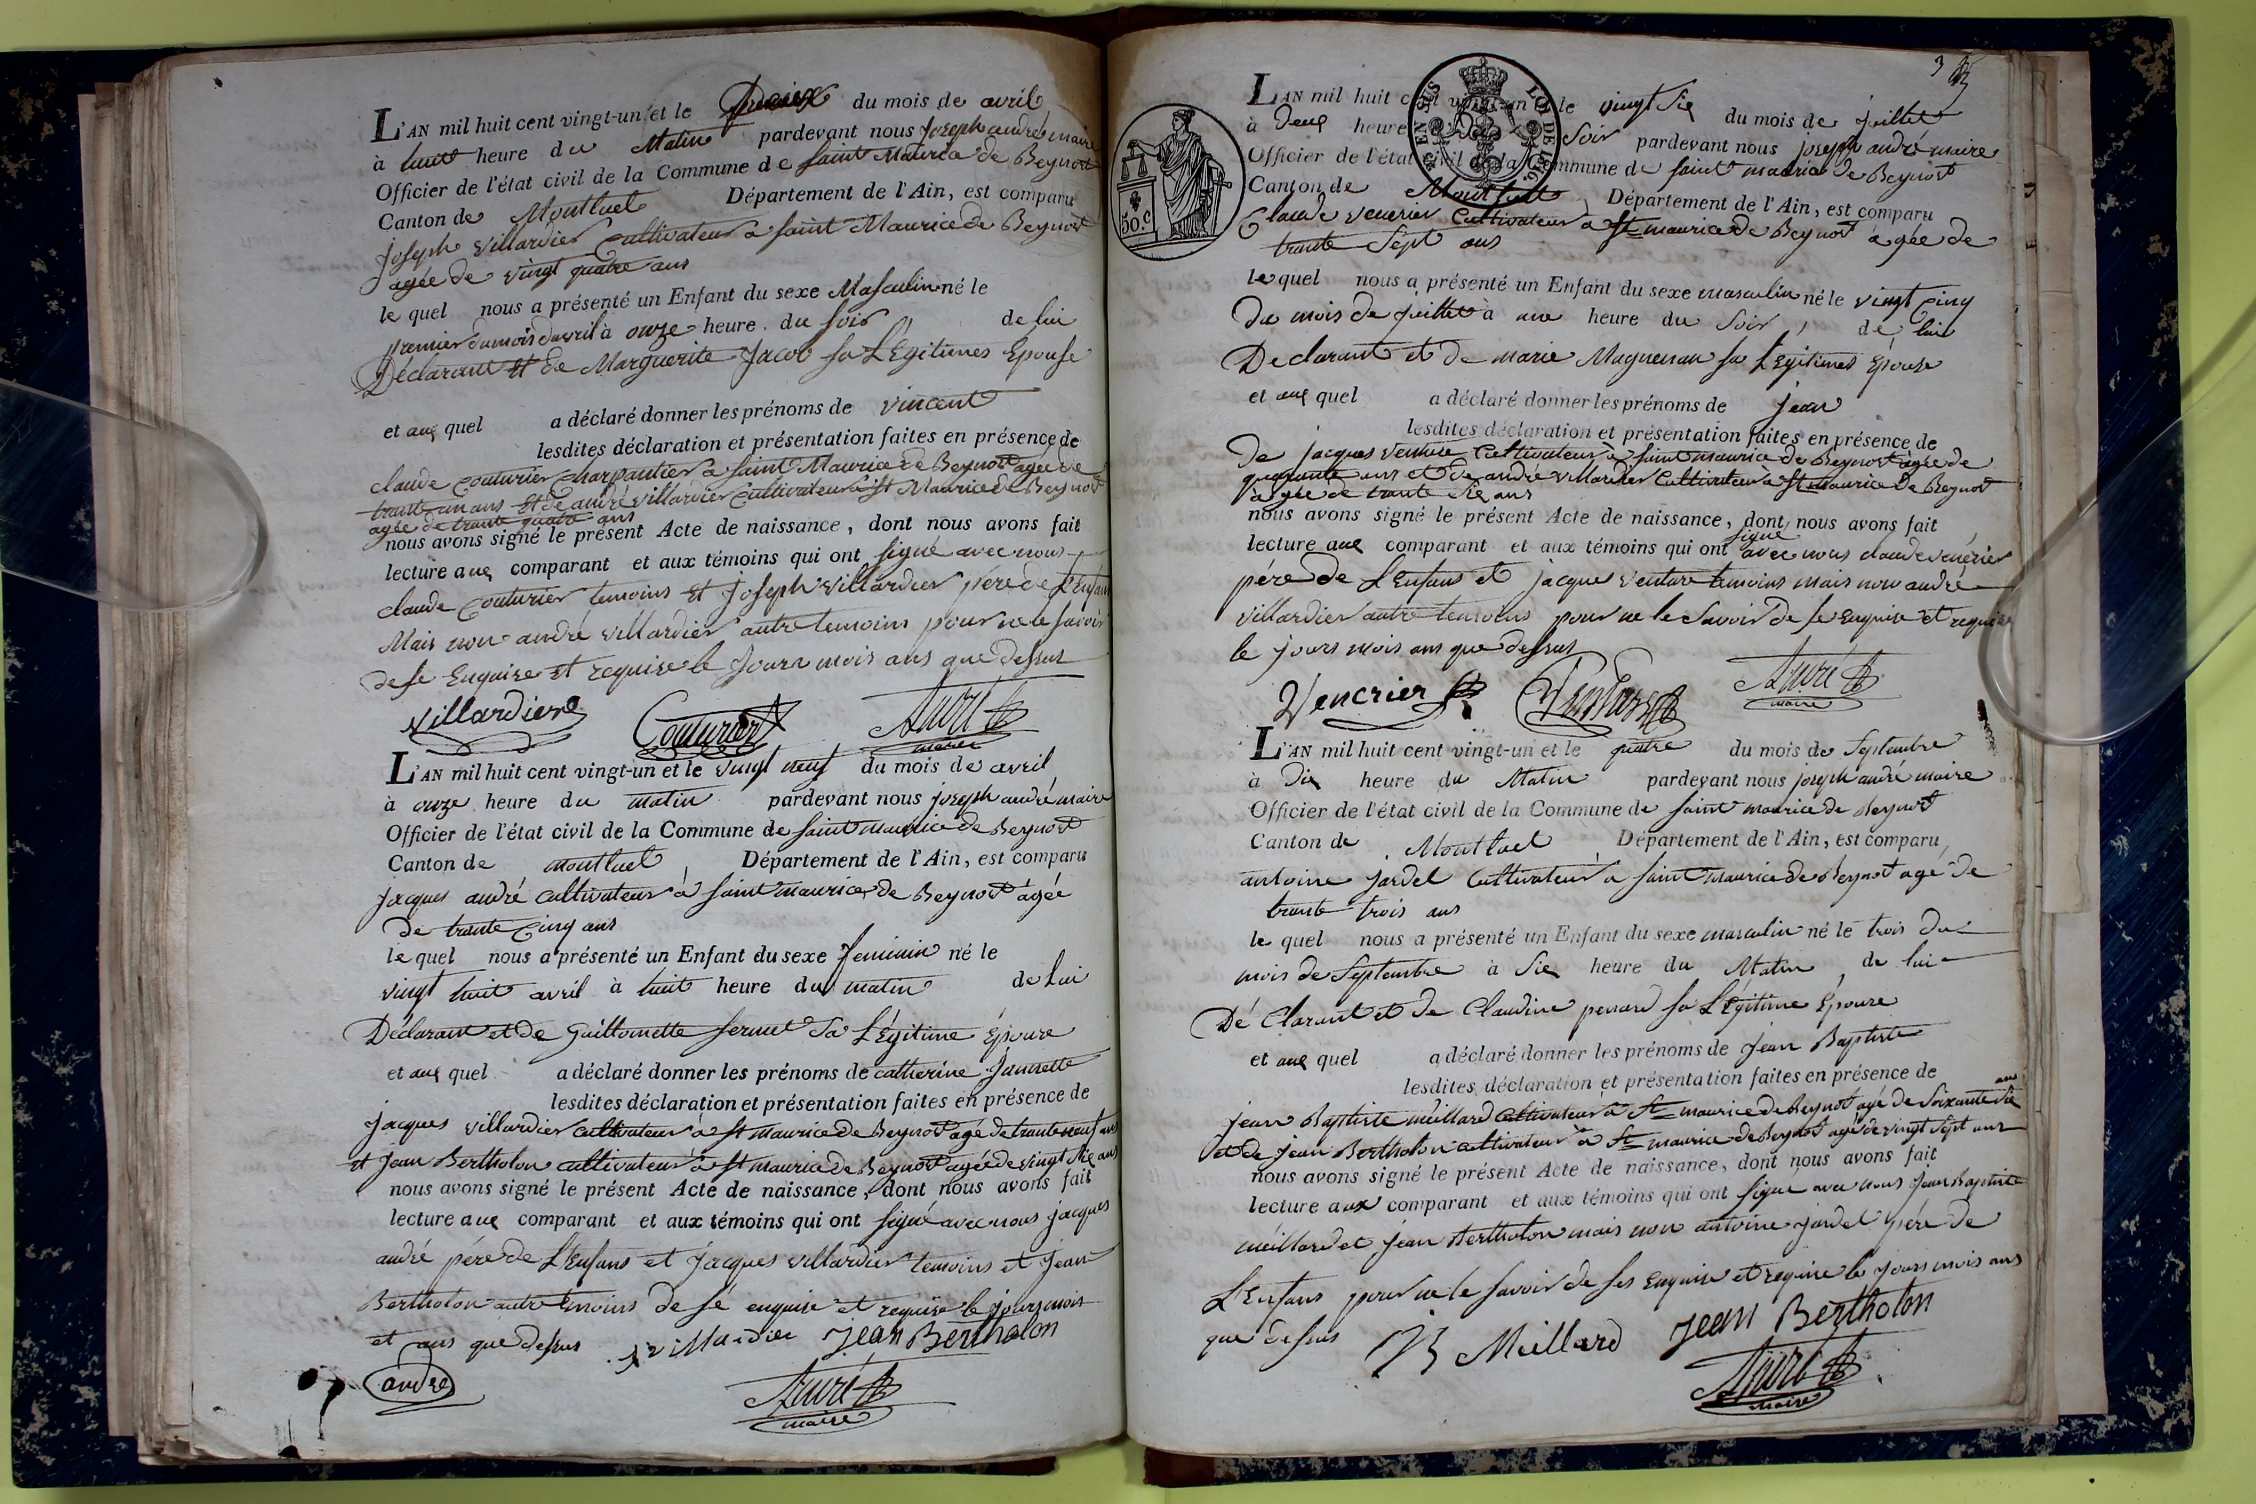 L'AN mil huit cent vingt-un et le Deux du mois de avril
à huit heure du Matin pardevant nous Joseph andré maire
Officier de l'état civil de la Commune de saint Maurice de Beynost
Canton de Montluel Département de l'Ain, est comparu
Joseph Villardier Cultivateur a saint Maurice de Beynost
agée de vingt quatre ans
le quel nous a présenté un Enfant du sexe Masculin né le
premier du mois d'avril à onze heure du soir, de lui
Déclarant Et de Marguerite Jacob sa L'Egitimes Epouse
et auq quel a déclaré donner les prénoms de vincent
lesdites déclaration et présentation faites en présence de
claude Couturier charpantier a saint Maurice de Beynost agée de
trante un ans Et de andré villardier Cultivateur a st Maurice de Beynost
agée de trante quatre ans
nous avons signé le présent Acte de naissance, dont nous avons fait
lecture auq comparant et aux témoins qui ont signé avec nous
claude Couturier temoins Et Joseph villardier pére de L'Enfans
Mais non andré villardier autre temoins pour ne le savoir
de se Enquise et requise le Jours mois ans que dessus
villardier Couturier André
maire
L'AN mil huit cent vingt-un et le vingt neuf du mois de avril
à onze heure du matin pardevant nous joseph andré maire
Officier de l'état civil de la Commune de saint maurice de Beynost
Canton de montluel, Département de l'Ain, est comparu
Jacques andré cultivateur à saint maurice de Beynost àgéé
De trante Cinq ans
le quel nous a présenté un Enfant du sexe feminin né le
vingt huit avril à huit heure du matin de lui
Déclarant et de Guillomette fernet Sa L'Égitime Épouse
et auq quel a déclaré donner les prénoms de catherine Jannette
lesdites déclaration et présentation faites en présence de
jacques villardier cultivateur a st maurice de Beynost agé de trante neuf ans
et Jean Bertholon cultivateur a st maurice de Beynost agéé de vingt Six ans
nous avons signé le présent Acte de naissance, dont nous avons fait
lecture auq comparant et aux témoins qui ont signé avec nous jacques
andré pére de L'Enfans et Jacques villardier temoins et Jean
Bertholon autre temoins de sé enquise et requise le jours mois
et ans que dessus villardier Jean Bertholon
andre
André
maire
3
L'AN mil huit cent vingt-un et le vingt Six du mois de juillet
à Deuq heure Du Soir pardevant nous joseph andré maire
Officier de l'état civil de la Commune de saint maurice de Beynost
Canton de Montluel, Département de l'Ain, est comparu
Claude venerier Cultivateur a St maurice de Beynost àgée de
trante Sept ans
le quel nous a présenté un Enfant du sexe masculin né le vingt Cinq
Du mois de juillet à une heure du Soir, de lui
Declarant et de marie Maguenan sa L'Egitimes Épouse
et auq quel a déclaré donner les prénoms de jean
lesdites déclaration et présentation faites en présence de
De jacques venture Cultivateur à saint maurice de Beynost àgée de
quarante ans et de andré villardier Cultivateur à St maurice de Beynost
agée de trante Six ans
nous avons signé le présent Acte de naissance, dont nous avons fait
lecture auq comparant et aux témoins qui ont signé avec nous claude venérier
pére de L'Enfans et jacques venture temoins mais non andré
villardier autre temoins pour ne le Savoir De se Enquise et requise
le jours mois ans que dessus
Venerier Venture André
maire
50.c
EN SUS LOI DE 1816.
L'AN mil huit cent vingt-un et le quatre du mois de Septembre
à Dix heure du Matin pardevant nous joseph andré maire
Officier de l'état civil de la Commune de saint maurice de Beynost
Canton de Montluel Département de l'Ain, est comparu,
antoine jardel Cultivateur a saint maurice de Beynost agé de
trante trois ans
le quel nous a présenté un Enfant du sexe masculin né le trois Du
mois de Septembre à Six heure du Matin, de lui
Dé Clarant et de Claudine penard sa L'Égitime Épouse
et auq quel a déclaré donner les prénoms de jean Baptiste
lesdites déclaration et présentation faites en présence de
jean Baptiste meillard Cultivateur a St maurice de Beynost agé de Soixante Six ans
et de jean Bertholon cultivateur à St maurice de Beynost agé de vingt Sept ans
nous avons signé le présent Acte de naissance, dont nous avons fait
lecture aux comparant et aux témoins qui ont signé avec nous jean Baptiste
meillard et jean Bertholon mais non antoine jardel pére de
L'Enfans pour ne le savoir de ses Enquise et requise le jours mois ans
que dessus Meillard Jean Bertholon
André
maire